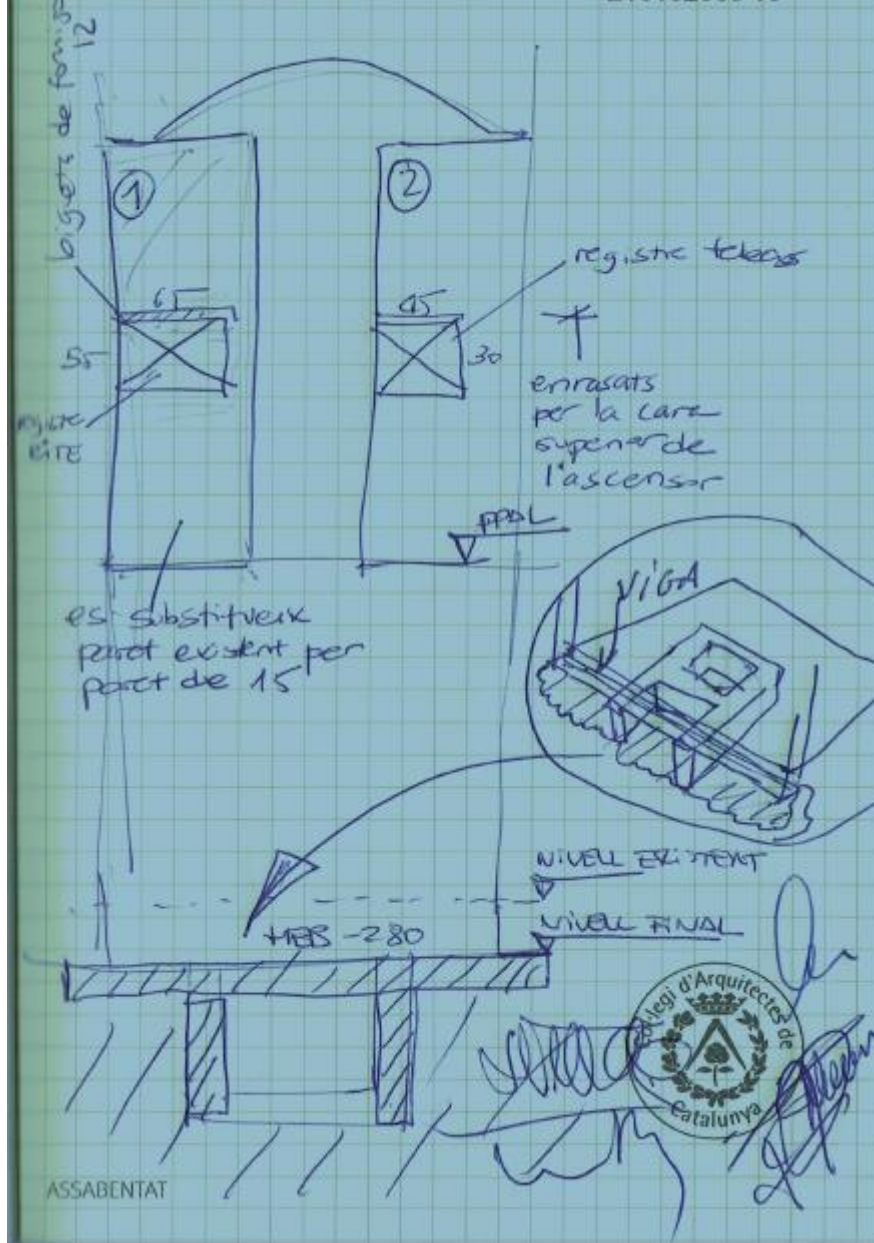 de
12
1
2
registre
65
45
55
30
registre
RITE
enrasats
per la cara
superior de
l'ascensor
PPAL
es substitueix
paret existent per
paret de 15
VIGA
NIVELL EXISTENT
NIVELL FINAL
HEB-280
Col·legi d'Arquitectes de Catalunya
ASSABENTAT